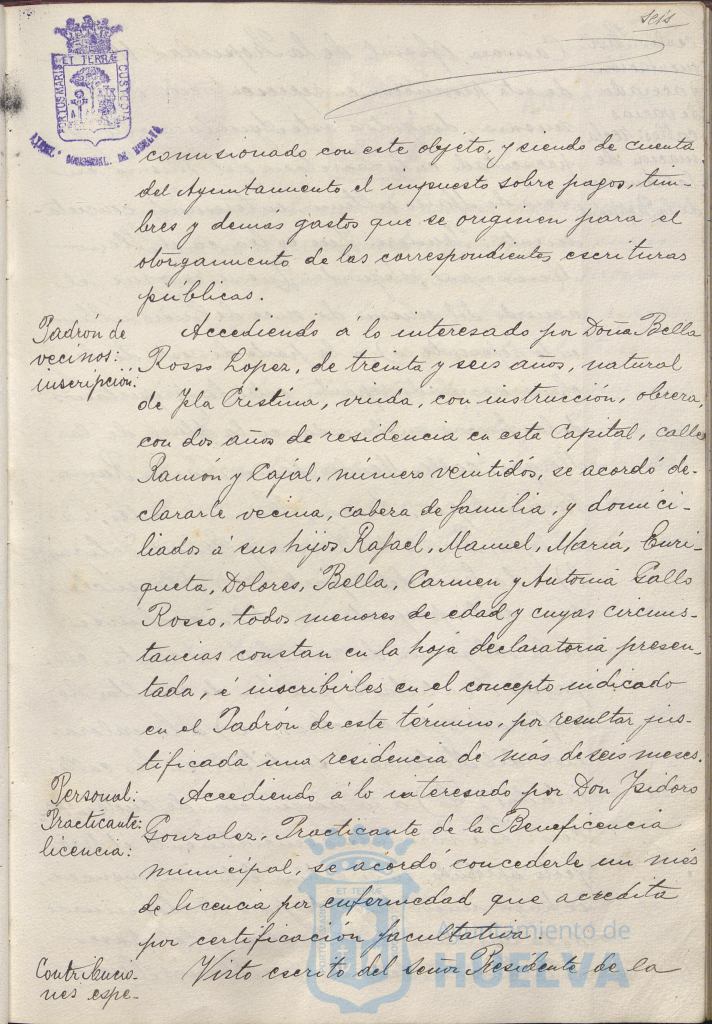 seis
PORTUS MARIS ET TERRÆ CUSTODIA
AYUNT. CONSTITUCIONAL. DE HUELVA
comisionado con este objeto, y siendo de cuenta
del Ayuntamiento el impuesto sobre pagos, tim-
bres y demás gastos que se originen para el
otorgamiento de las correspondientes escrituras
públicas.
Padrón de
vecinos:
inscripción:
Accediendo á lo interesado por Doña Bella
Rosso Lopez, de treinta y seis años, natural
de Isla Cristina, viuda, con instrucción, obrera,
con dos años de residencia en esta Capital, calle
Ramón y Cajal, número veintidós, se acordó de-
clararle vecina, cabeza de familia, y domici-
liados á sus hijos Rafael, Manuel, María, Enri-
queta, Dolores, Bella, Carmen y Antonia Gallo
Rosso, todos menores de edad y cuyas circuns-
tancias constan en la hoja declaratoria presen-
tada, é inscribirles en el concepto indicado
en el Padrón de este término, por resultar jus-
tificada una residencia de más de seis meses.
Personal:
Practicante:
licencia:
Accediendo á lo interesado por Don Isidoro
Gonzalez, Practicante de la Beneficencia
municipal, se acordó concederle un mes
de licencia por enfermedad que acredita
por certificación facultativa.
Contribucio
nes espe-
Visto escrito del señor Presidente de la
Ayuntamiento de
HUELVA